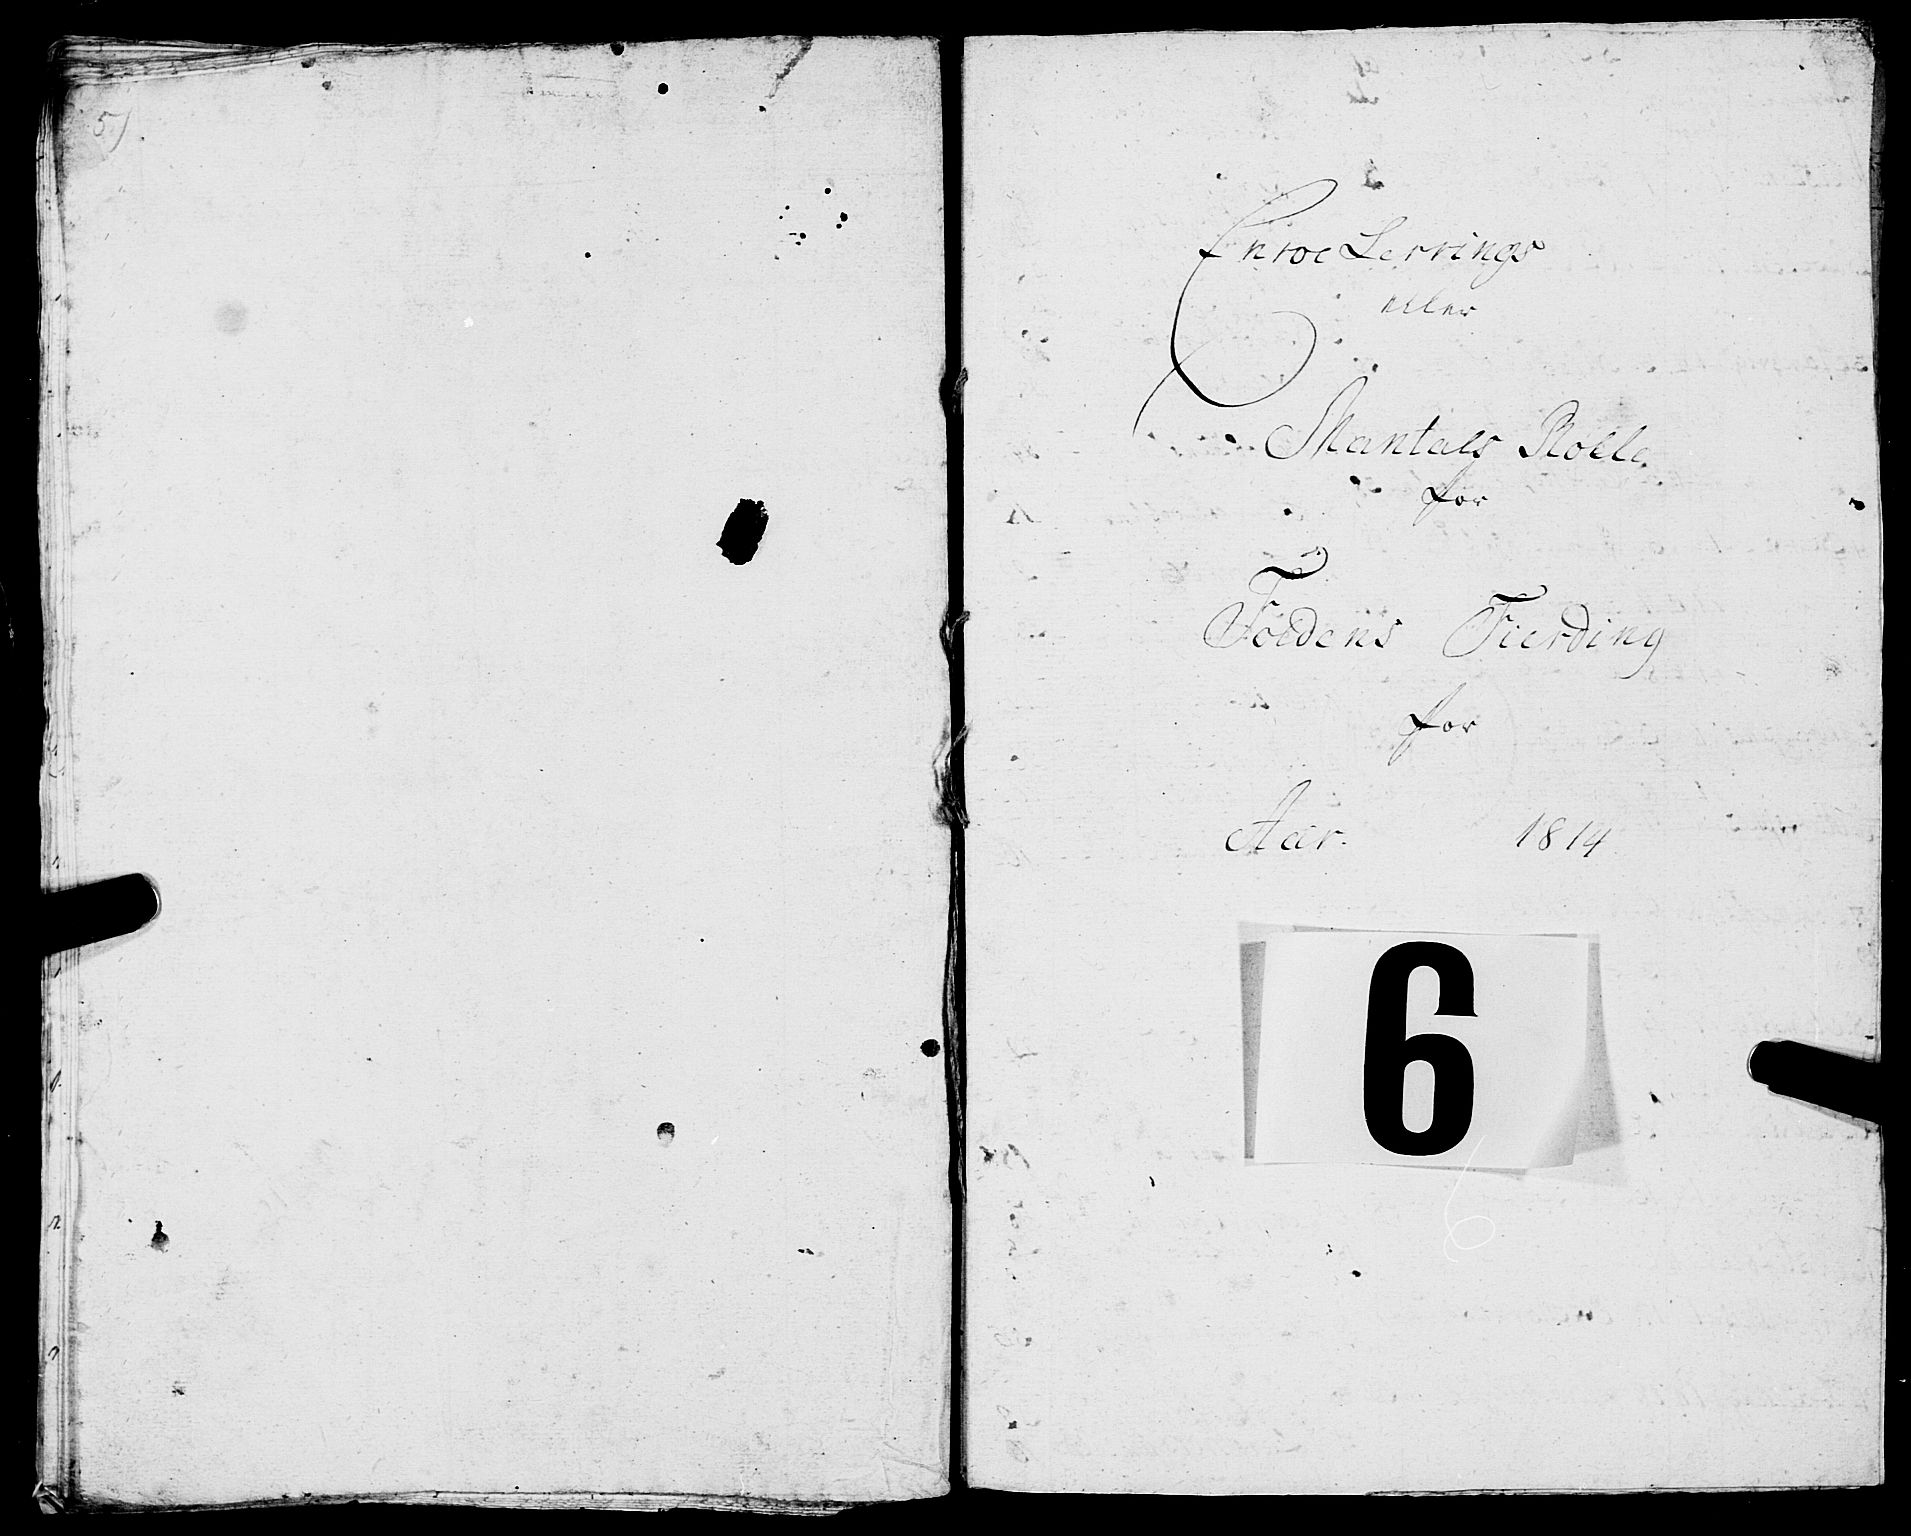 5)
EnroeLerrings
eller
Mantals Rolle
for
Foldens Fierding
for
Aar. 1814
6